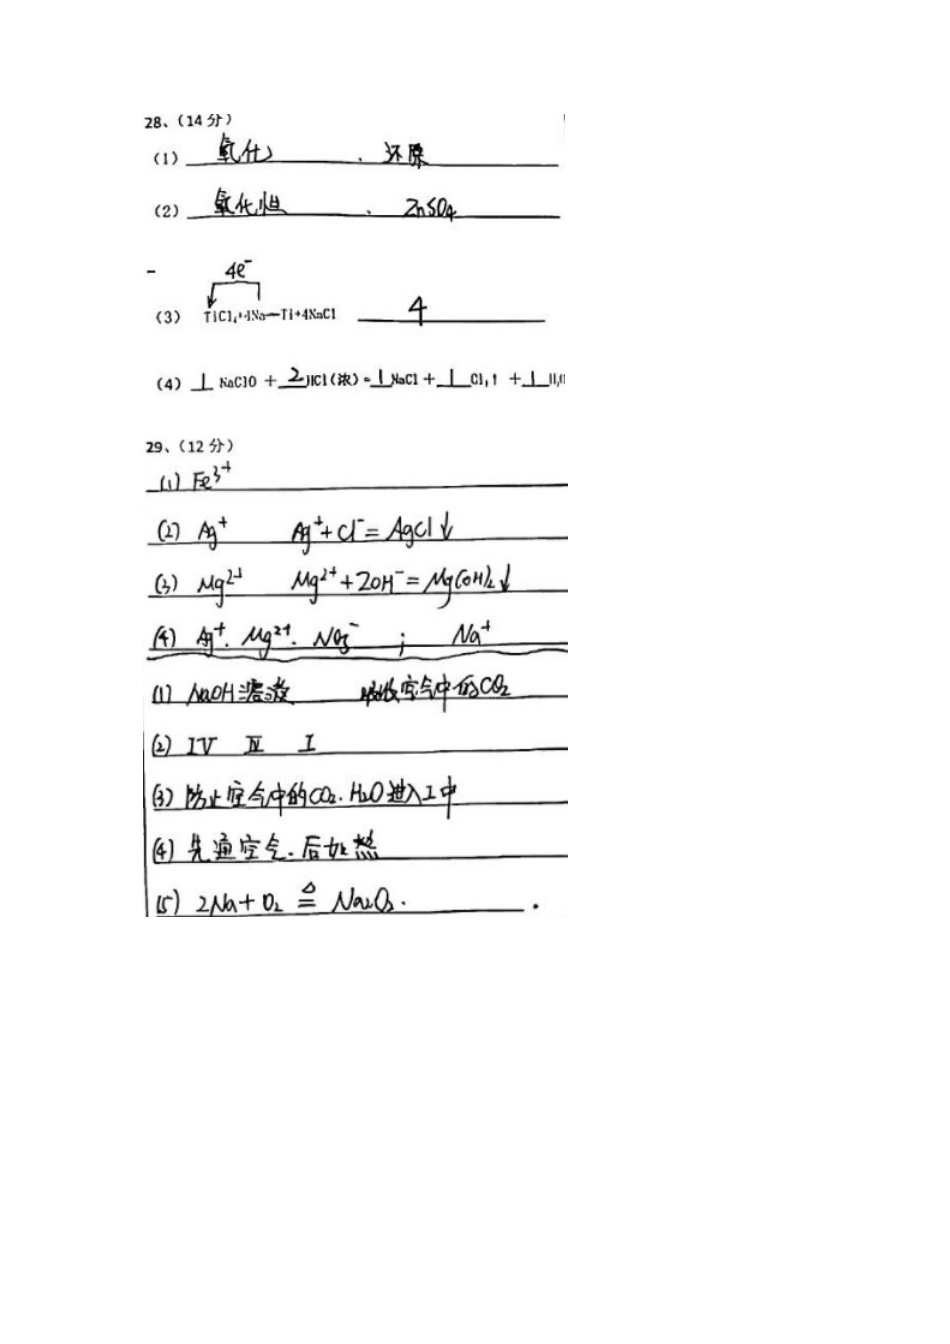 28、(14 分)
(1) 氧化 、 还原
(2) 氧化性 、 ZnSO₄
4e⁻
(3) TiCl₄+4Na=Ti+4NaCl 4
(4) 1 NaClO + 2 HCl(浓) = 1 NaCl + 1 Cl₂↑ + 1 H₂O
29、(12 分)
(1) Fe³⁺
(2) Ag⁺ Ag⁺+Cl⁻=AgCl↓
(3) Mg²⁺ Mg²⁺+2OH⁻=Mg(OH)₂↓
(4) Ag⁺、Mg²⁺、NO₃⁻ ; Na⁺
(1) NaOH溶液 吸收空气中的CO₂
(2) IV Ⅳ I
(3) 防止空气中的CO₂、H₂O进入I中
(4) 先通空气、后加热
(5) 2Na+O₂ ≜ Na₂O₂.